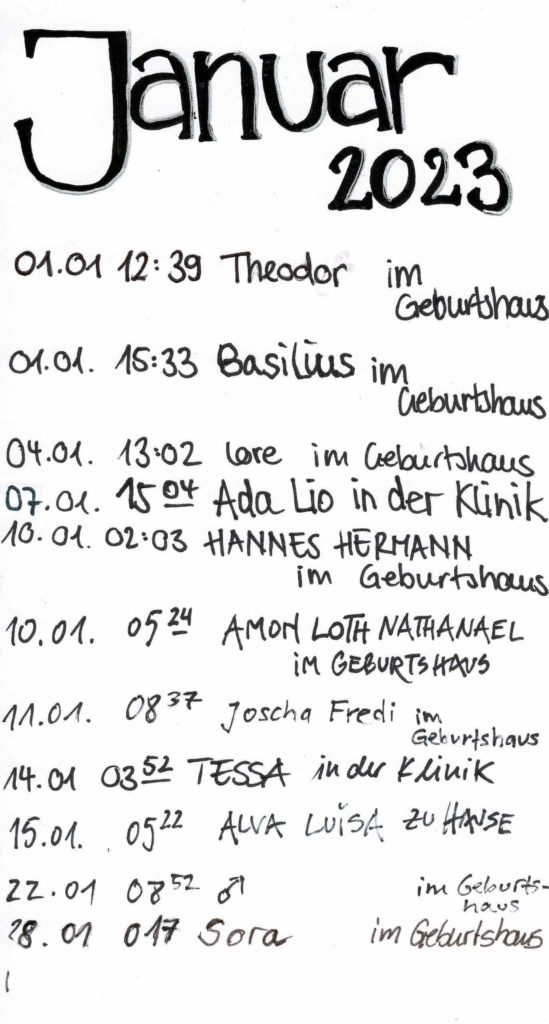 Januar
2023
01.01 12:39 Theodor im
Geburtshaus
01.01. 15:33 Basilius im
Geburtshaus
04.01. 13:02 Lore im Geburtshaus
07.01. 15 04 Ada Lio in der Klinik
10.01. 02:03 HANNES HERMANN
im Geburtshaus
10.01. 05 24 AMON LOTH NATHANAEL
im GEBURTSHAUS
11.01. 08 37 Joscha Fredi im
Geburtshaus
14.01 03 52 TESSA in der Klinik
15.01. 05 22 ALVA LUISA ZU HAUSE
22.01 08 52 ♂ im Geburts-
haus
28.01 017 Sora im Geburtshaus